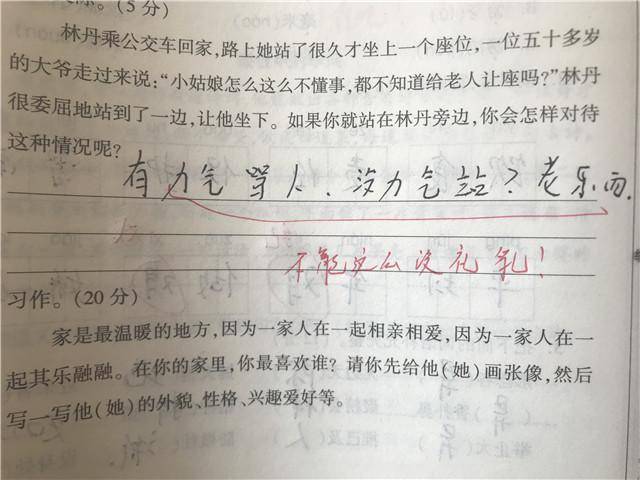 (5分)
林丹乘公交车回家,路上她站了很久才坐上一个座位,一位五十多岁
的大爷走过来说:“小姑娘怎么这么不懂事,都不知道给老人让座吗?”林丹
很委屈地站到了一边,让他坐下。如果你就站在林丹旁边,你会怎样对待
这种情况呢?
有力气骂人、没力气站?老东西.
不能这么没礼貌!
习作。(20分)
家是最温暖的地方,因为一家人在一起相亲相爱,因为一家人在一
起其乐融融。在你的家里,你最喜欢谁?请你先给他(她)画张像,然后
写一写他(她)的外貌、性格、兴趣爱好等。